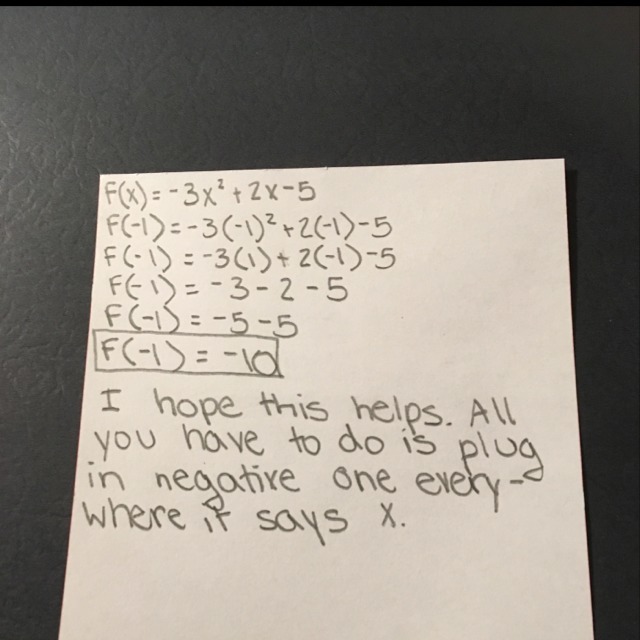 F(x) = -3x² + 2x - 5
F(-1) = -3(-1)² + 2(-1) - 5
F(-1) = -3(1) + 2(-1) - 5
F(-1) = -3 - 2 - 5
F(-1) = -5 - 5
F(-1) = -10
I hope this helps. All
you have to do is plug
in negative one every-
where it says x.